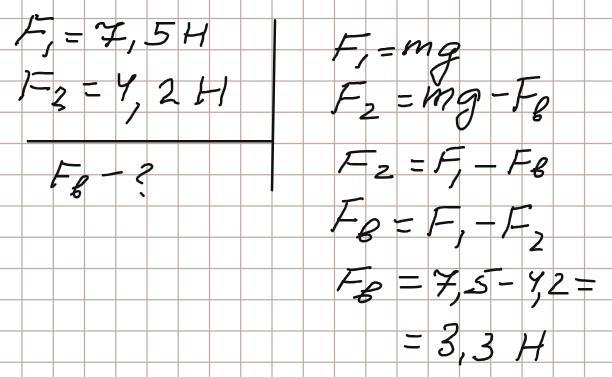 F₁ = 7,5 Н
F₂ = 4,2 Н
Fв – ?
F₁ = mg
F₂ = mg – Fв
F₂ = F₁ – Fв
Fв = F₁ – F₂
Fв = 7,5 – 4,2 =
= 3,3 Н